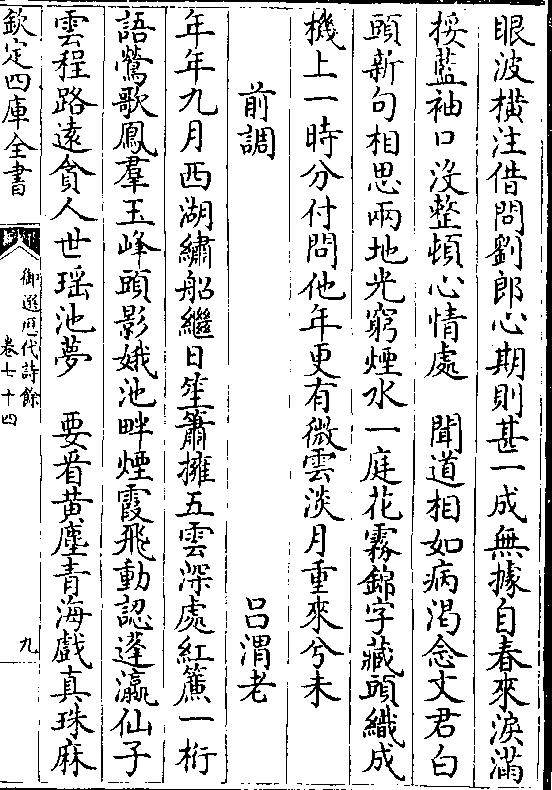 眼波橫注借問劉郎心期則甚一成無據自春來淚滿
挼藍袖口没整頓心情處　聞道相如病渴念文君白
頭新句相思兩地光窮煙水一庭花霧錦字藏頭織成
機上一時分付問他年更有微雲淡月重來兮未
前調　呂渭老
年年九月西湖繡船繼日笙簫擁五雲深處紅簾一桁
語鶯歌鳳羣玉峰頭影娥池畔煙霞飛動認蓬瀛仙子
雲程路遠貪人世瑶池夢　要看黄塵青海戲真珠麻
欽定四庫全書
御選歷代詩餘
卷七十四
九